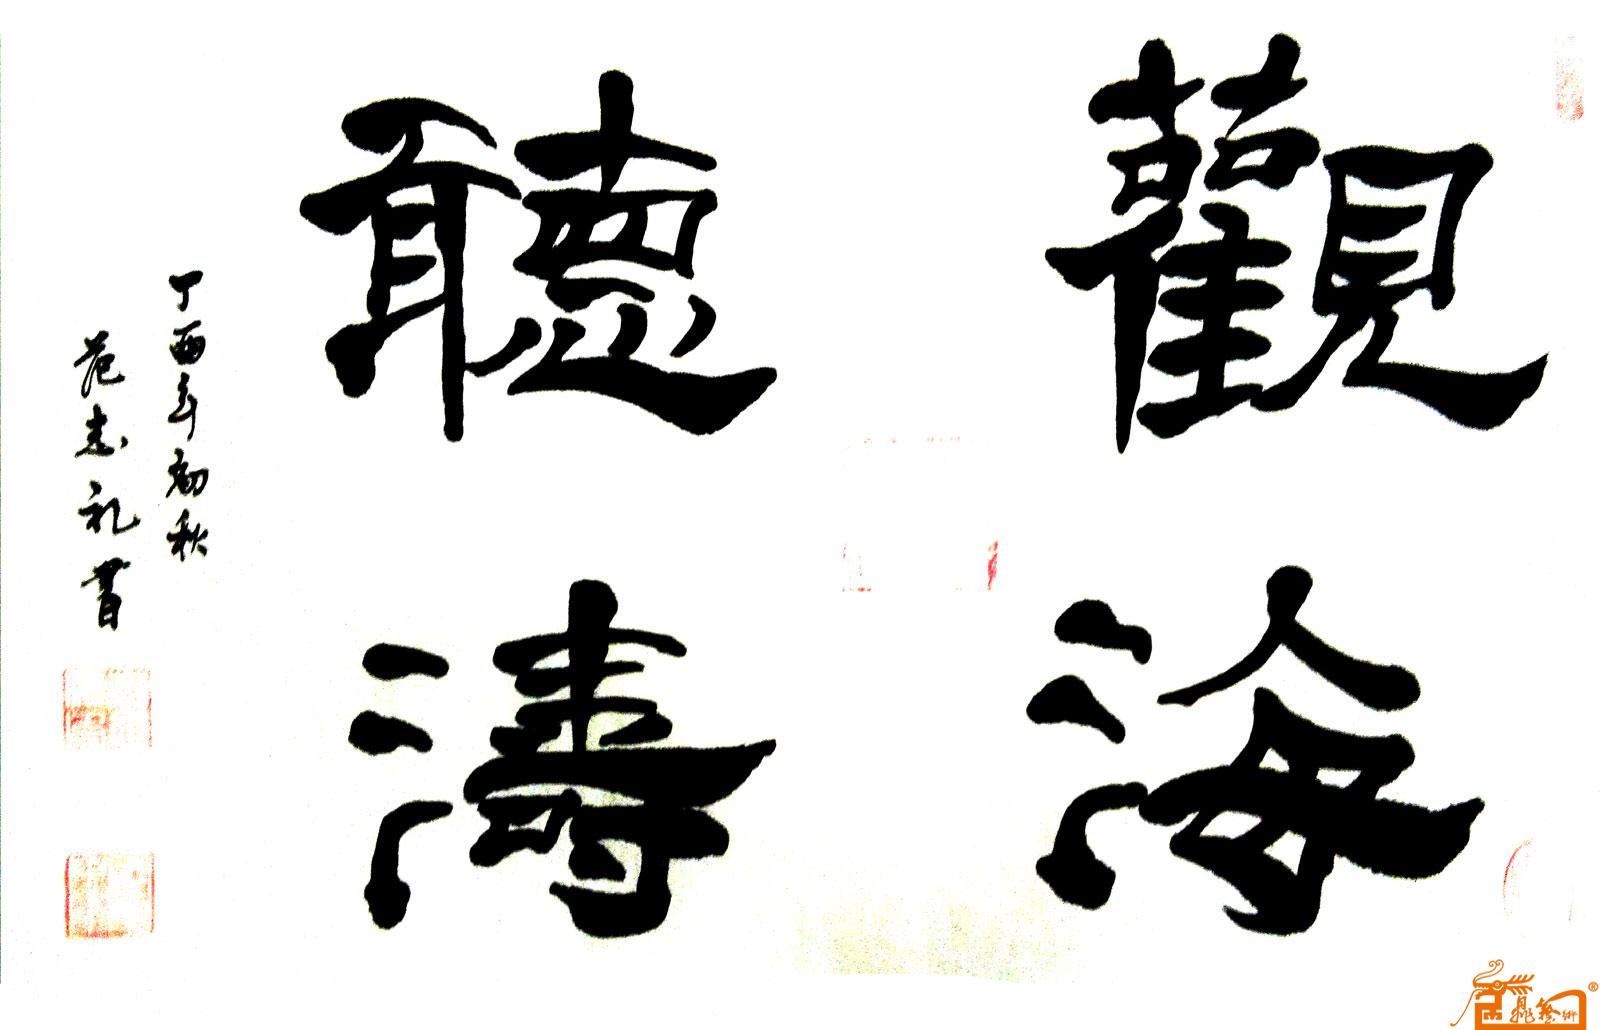 觀海
聽濤
丁酉年初秋
范志礼書